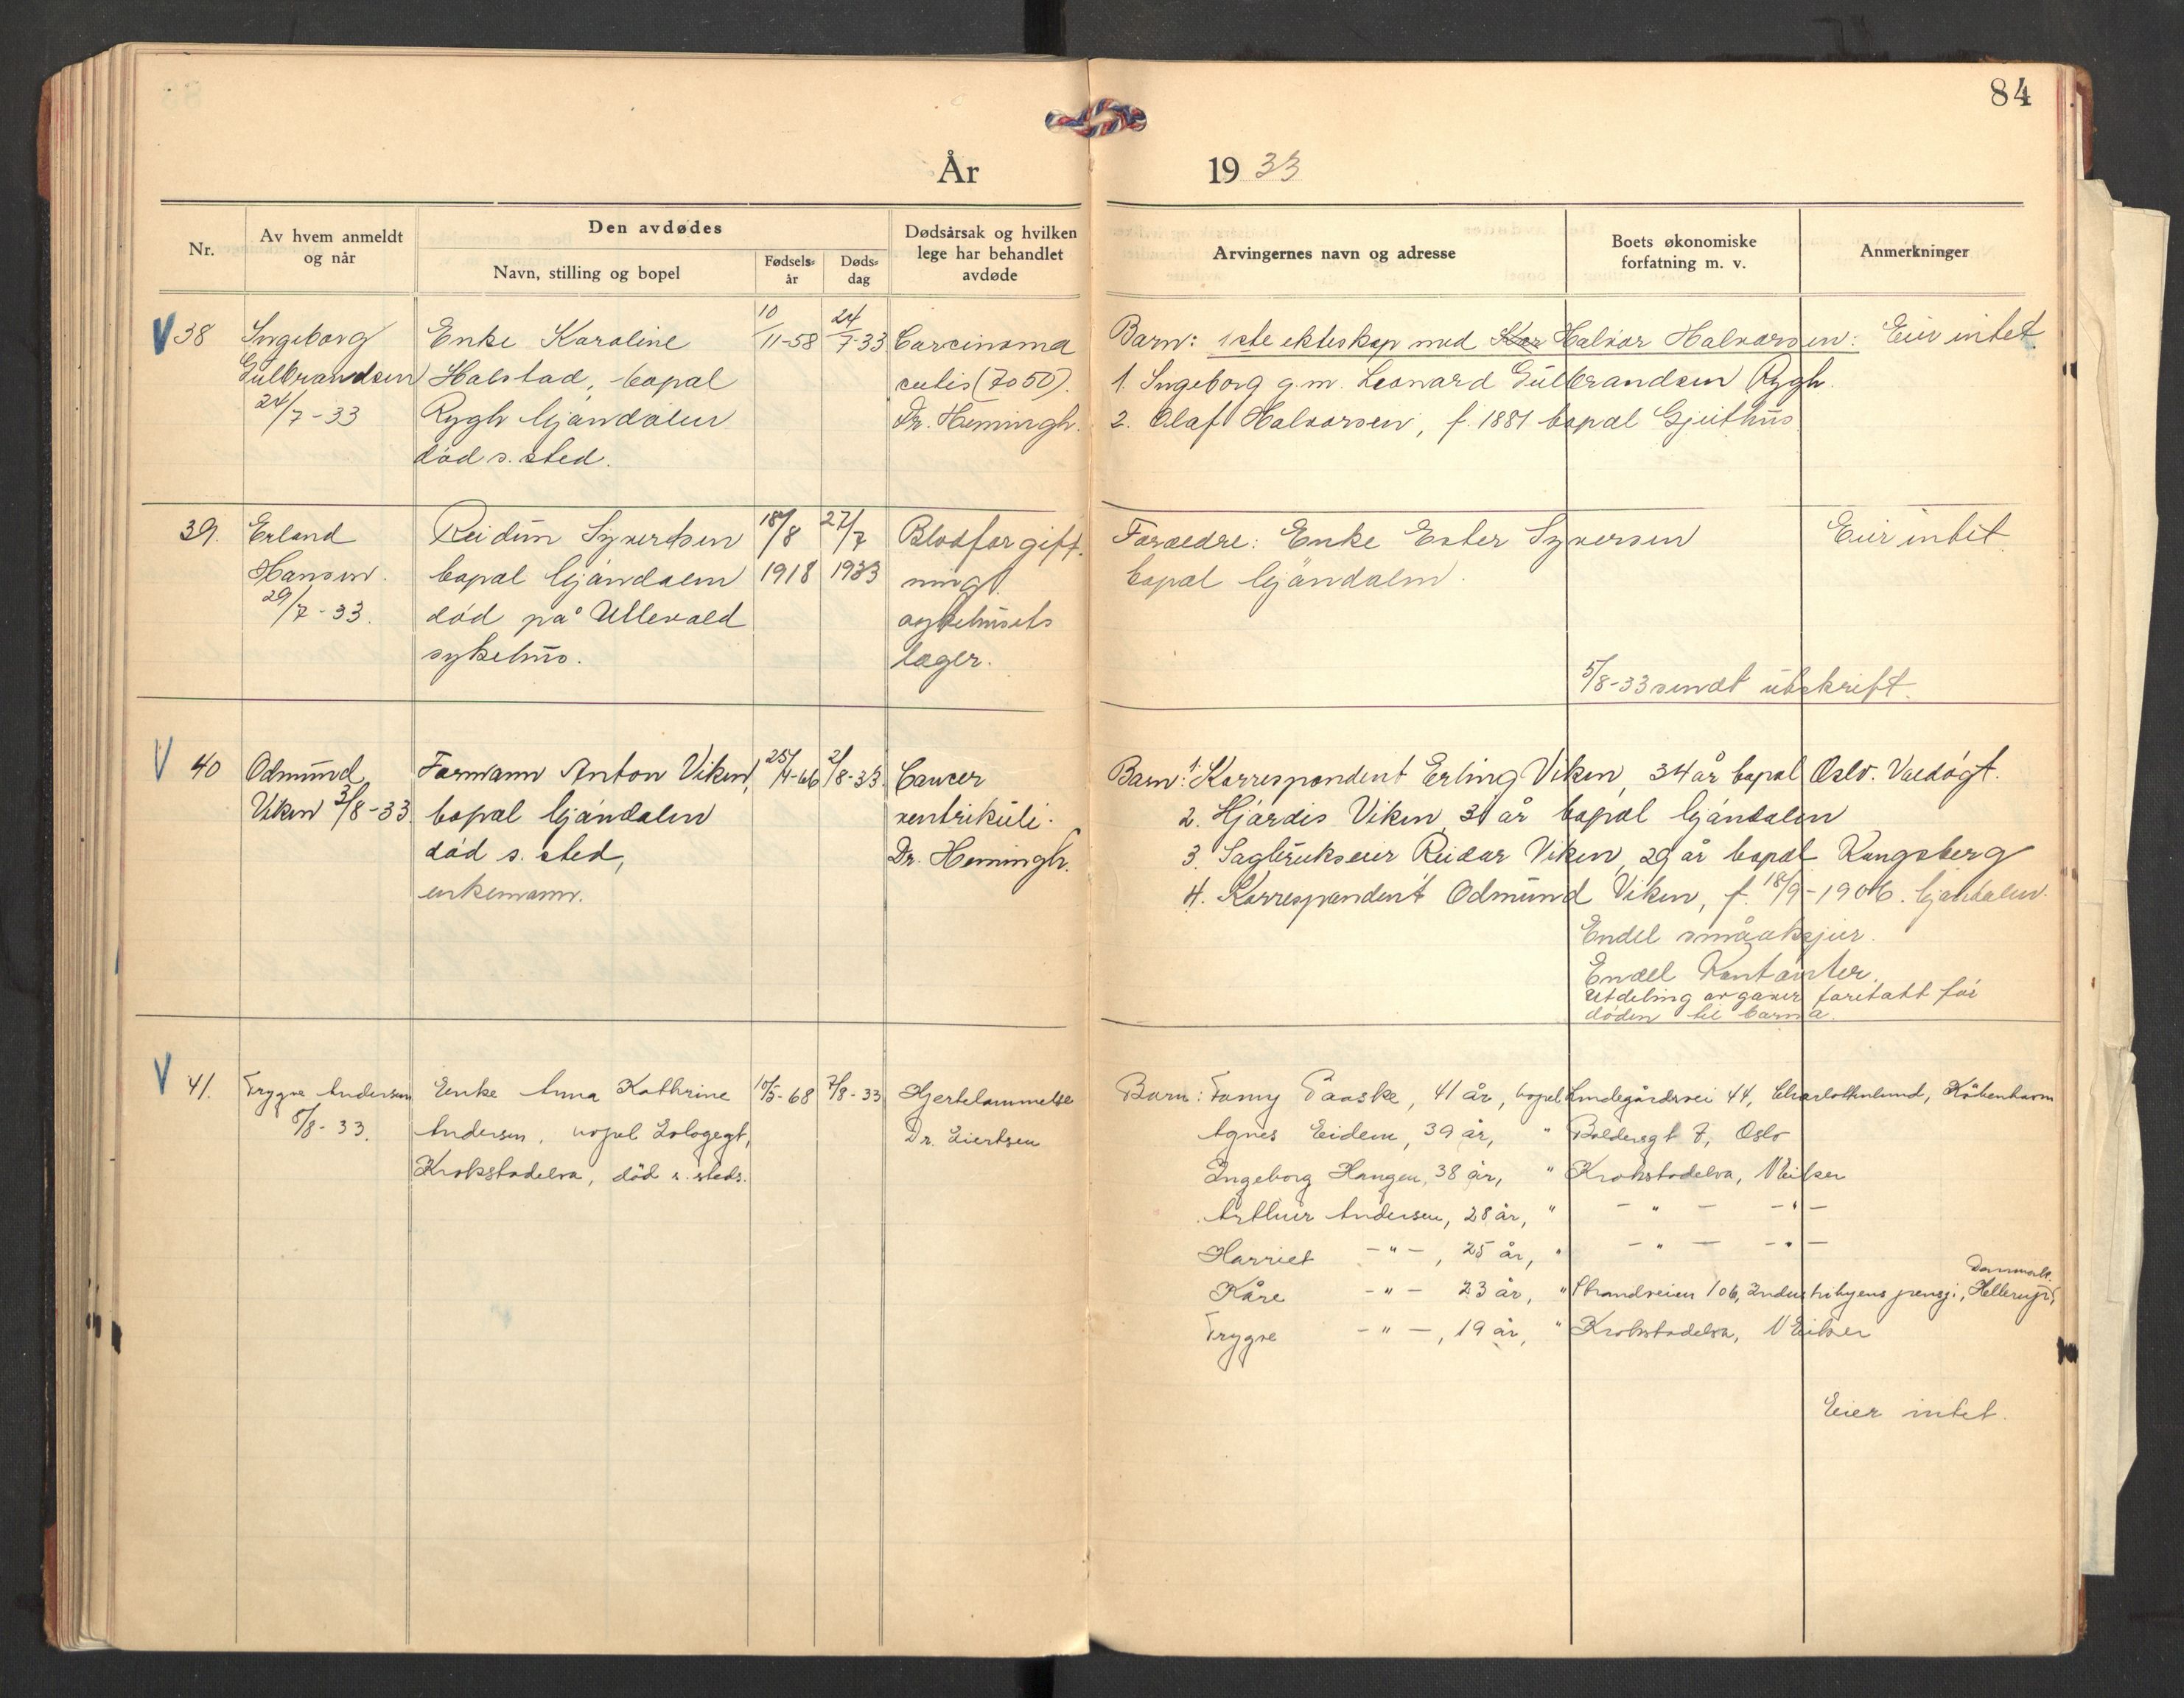 84
År 1933
Nr.
Av hvem anmeldt
og når
Den avdødes
Navn, stilling og bopel
Fødsels-
år
Døds-
dag
Dødsårsak og hvilken
lege har behandlet
avdøde
Arvingernes navn og adresse
Boets økonomiske
forfatning m. v.
Anmerkninger
V 38
Ingeborg
Gulbrandsen
24/7-33
Enke Karoline
Halstad, bopæl
Rygh Mjøndalen
død s. sted.
10/11-58
24/7-33
Carcinoma
cutis (7050).
Dr. Hemingh.
Barn: 1ste ekteskap med Kar Halvor Halvorsen:
1. Ingeborg g.m. Leonard Gulbrandsen Rygh.
2. Olaf Halvorsen, f. 1881 bopæl Gjeithus
Eier intet.
39.
Erland
Hansen.
29/7-33.
Reidun Syvertsen
bopæl Mjøndalen
død på Ullevold
sykehus.
18/8
1918
27/7
1933
Blodforgift-
ning.
sykehusets
læger.
Forældre: Enke Ester Syversen
bopæl Mjøndalen.
Eier intet
5/8-33 sendt utskrift.
V 40
Odmund
Viken 3/8-33.
Formann Anton Viken,
bopæl Mjøndalen
død s. sted,
enkemann.
25/4-66
2/8-33.
Cancer
ventrikuli.
Dr. Hemingh.
Barn: 1. Korrespondent Erling Viken, 34 år bopæl Oslo.
2. Hjørdis Viken, 31 år bopæl Mjøndalen
3. Sagbrukseier Reidar Viken, 29 år bopæl Kongsberg
4. Korrespondent Odmund Viken, f. 18/9-1906. Mjøndalen.
Endel småaksjer.
Endel Kontanter.
Utdeling av gaver foretatt før
døden til barna.
V 41.
Trygve Andersen
8/8-33.
Enke Anna Kathrine
Andersen, bopel
Krokstadelva, død s. steds.
10/5-68
7/8-33
Hjertelammelse
Dr. Eiertsen
Barn: Fanny Paaske, 41 år, bopel Lindegårdsvei 44, Charlottenlund, Köbenhavn
Agnes Eidem, 39 år, " Baldersgt 7, Oslo
Ingeborg Haugen, 38 år, " Krokstadelva, N Eiker
Arthur Andersen, 28 år, " - " - - " -
Harriet - " -, 25 år, " - " - - " -
Kåre - " - 23 år, " Strandveien 106, Industribyens pensj., Hellerup, Danmark.
Trygve - " -, 19 år, " Krokstadelva, N Eiker
Eier intet.